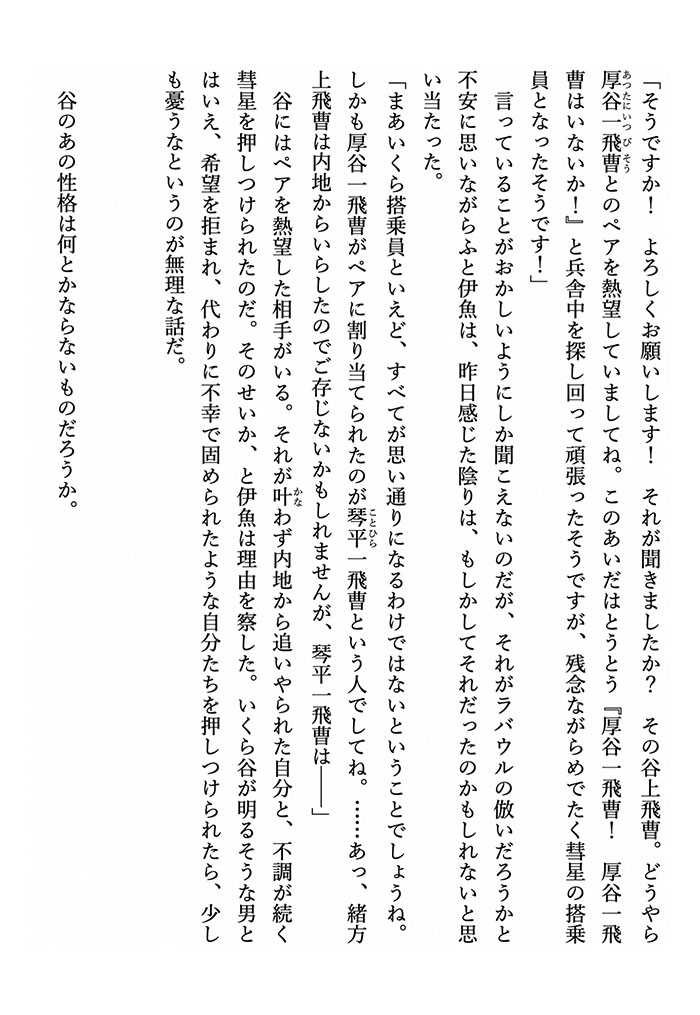 「そうですか！　よろしくお願いします！　それが聞きましたか？　その谷上飛曹。どうやら
厚谷一飛曹とのペアを熱望していましてね。このあいだはとうとう『厚谷一飛曹！　厚谷一飛
曹はいないか！』と兵舎中を探し回って頑張ったそうですが、残念ながらめでたく彗星の搭乗
員となったそうです！」
　言っていることがおかしいようにしか聞こえないのだが、それがラバウルの倣いだろうかと
不安に思いながらふと伊魚は、昨日感じた陰りは、もしかしてそれだったのかもしれないと思
い当たった。
「まあいくら搭乗員といえど、すべてが思い通りになるわけではないということでしょうね。
しかも厚谷一飛曹がペアに割り当てられたのが琴平一飛曹という人でしてね。……あっ、緒方
上飛曹は内地からいらしたのでご存じないかもしれませんが、琴平一飛曹は――」
　谷にはペアを熱望した相手がいる。それが叶わず内地から追いやられた自分と、不調が続く
彗星を押しつけられたのだ。そのせいか、と伊魚は理由を察した。いくら谷が明るそうな男と
はいえ、希望を拒まれ、代わりに不幸で固められたような自分たちを押しつけられたら、少し
も憂うなというのが無理な話だ。
　谷のあの性格は何とかならないものだろうか。